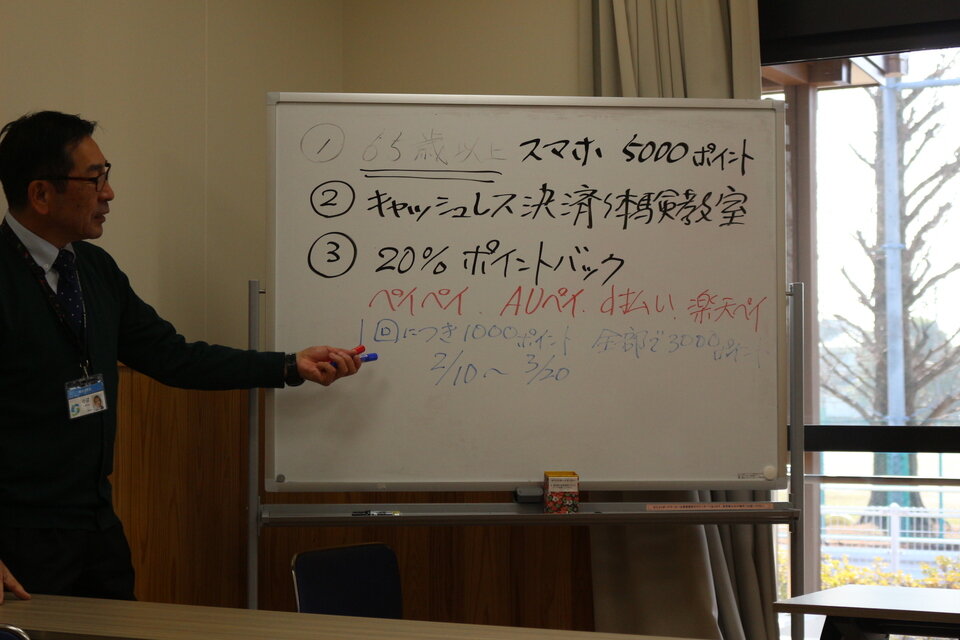 ① 65歳以上 スマホ 5000ポイント
② キャッシュレス決済体験教室
③ 20% ポイントバック
ペイペイ、AUペイ、d払い、楽天ペイ
1回につき1000ポイント 全部で3000ポイント
2/10〜3/20